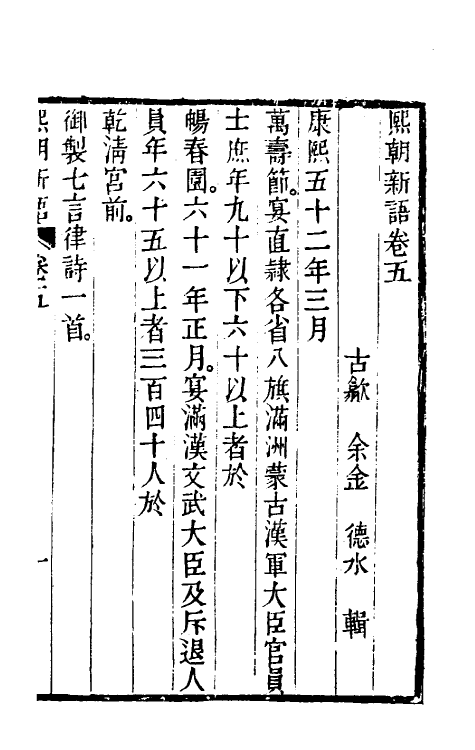 熙朝新語卷五
古歙 余金 德水 輯
康熙五十二年三月
萬壽節。宴直隸各省八旗滿洲蒙古漢軍大臣官員
士庶年九十以下六十以上者於
暢春園。六十一年正月。宴滿漢文武大臣及斥退人
員年六十五以上者三百四十人於
乾淸宮前。
御製七言律詩一首。
熙朝新語 卷五 一